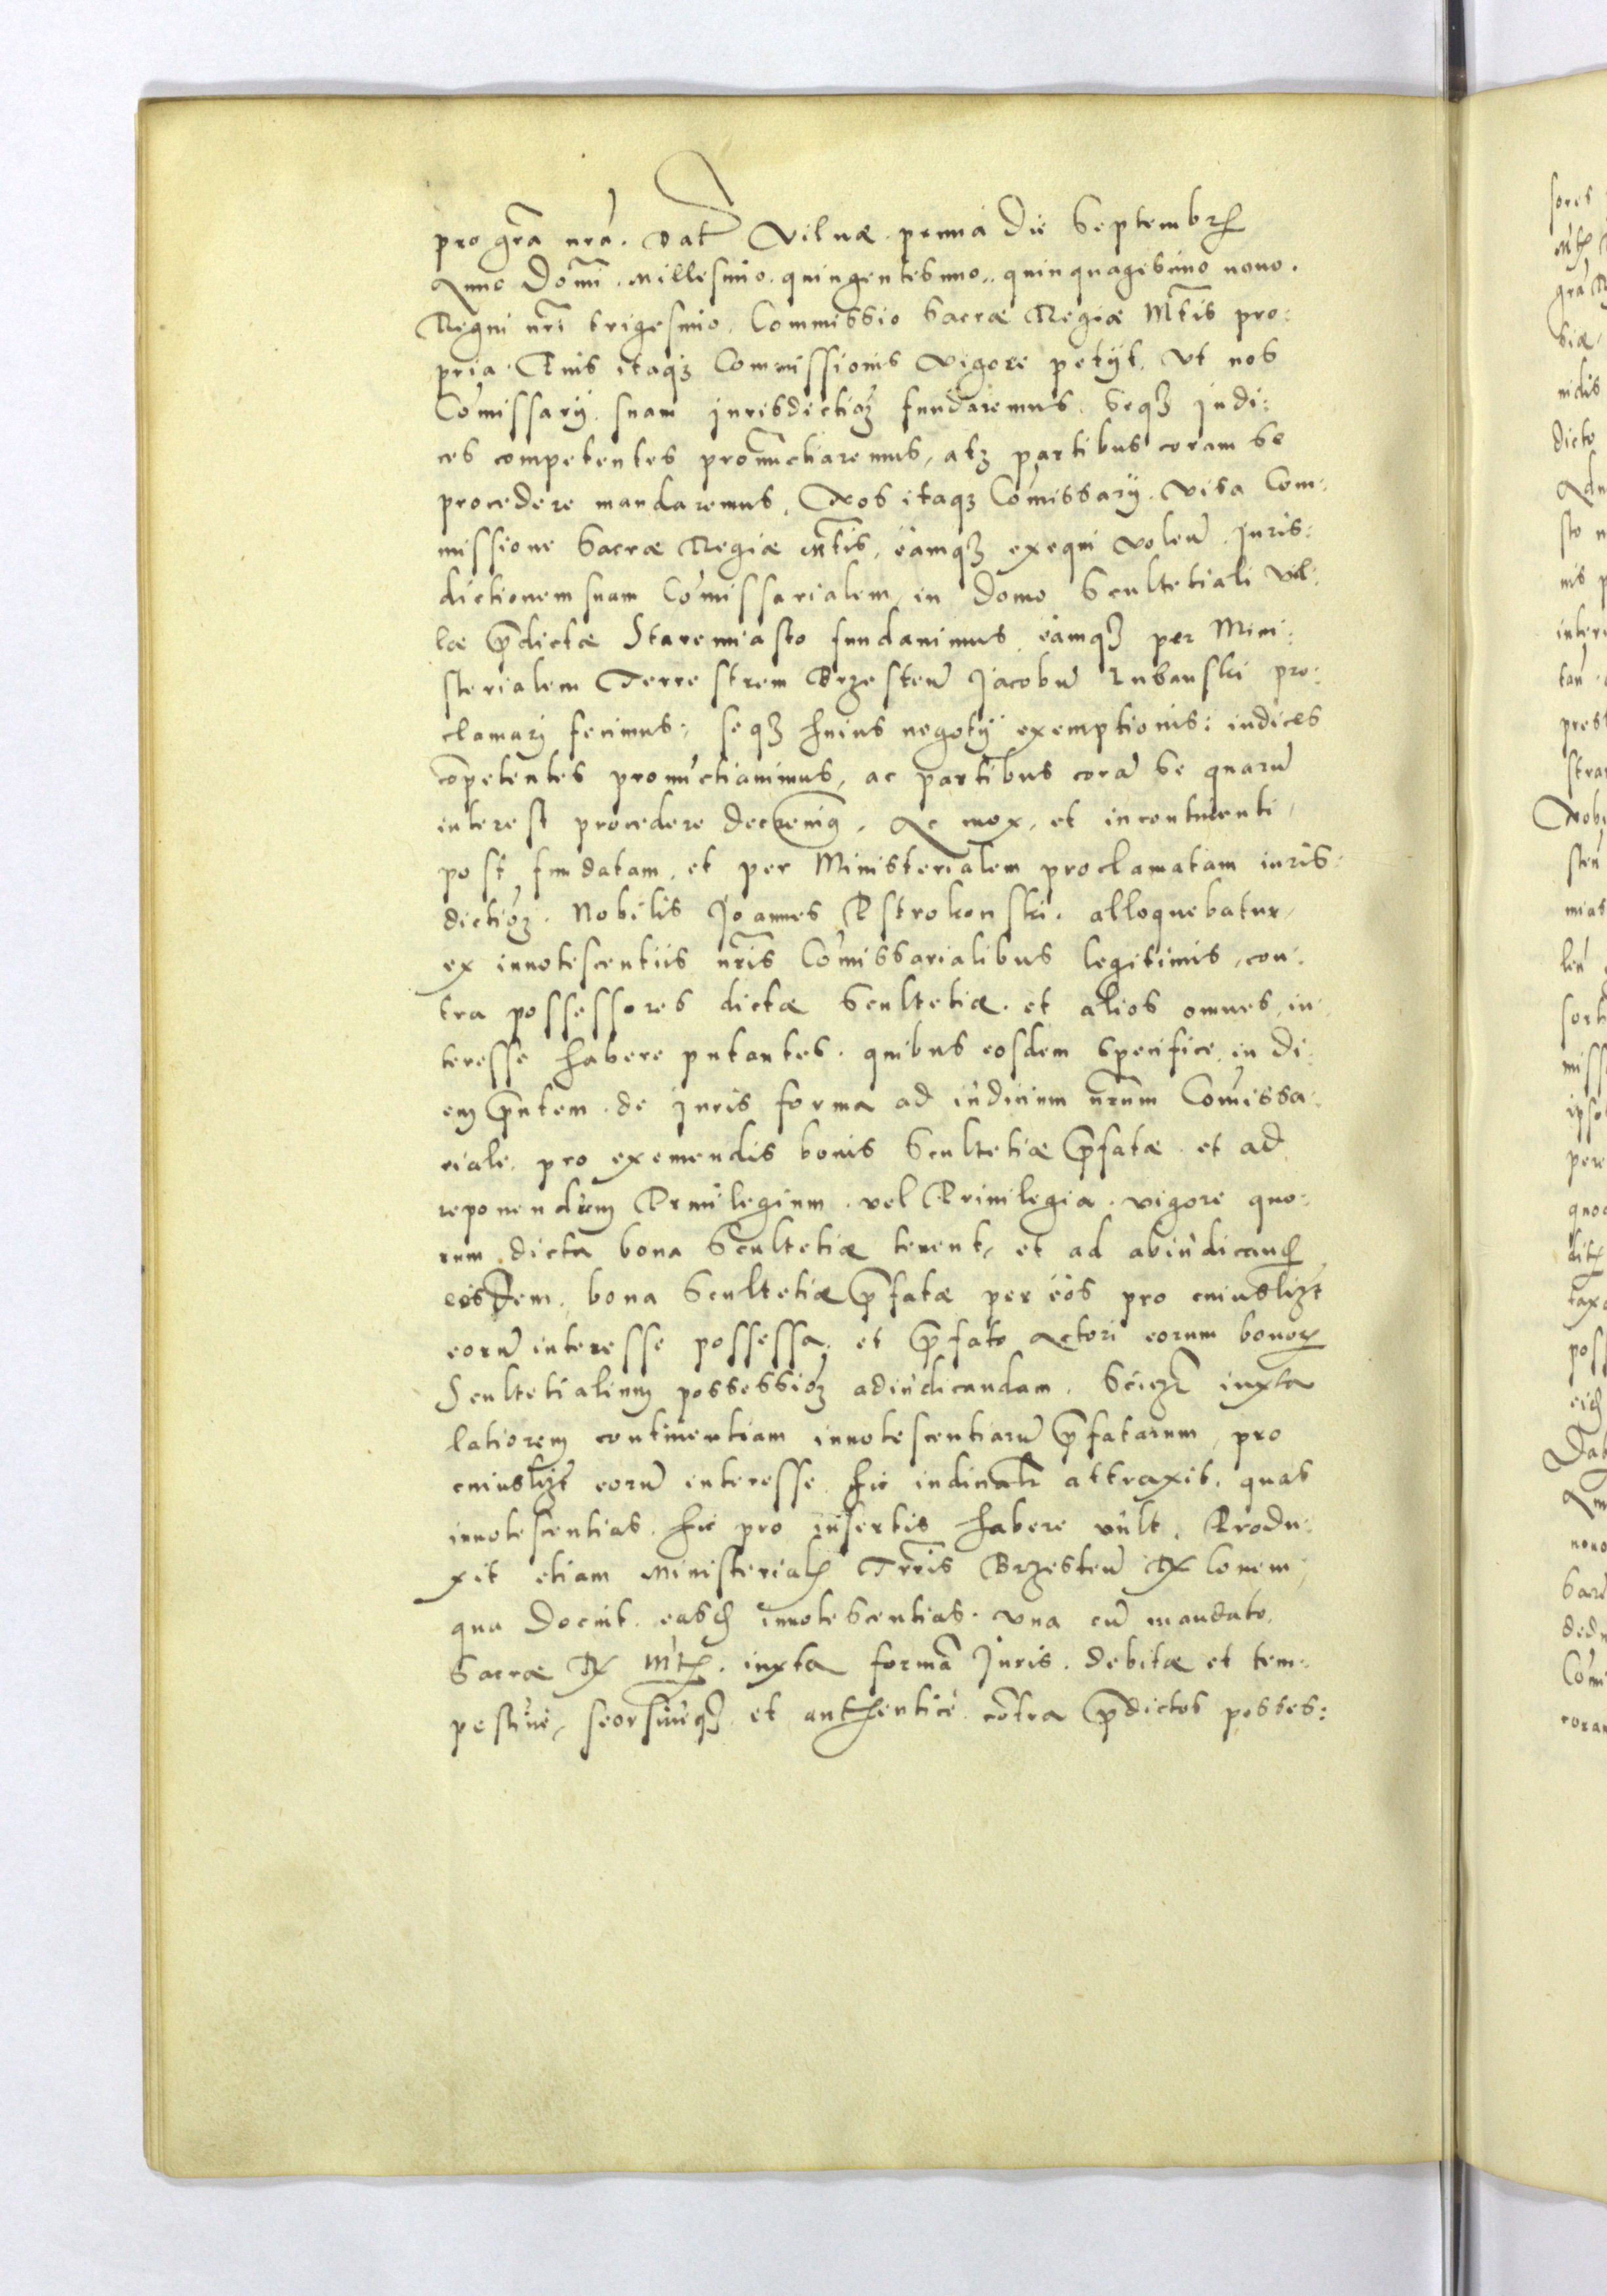 pro gra̅ nra̅. Dat Vilnæ. prima Die Septembr̃
Anno Domi̅. Millesimo. quingentesimo.. quinquagesimo nono.
Regni nr̅i trigesimo. Commissio Sacræ Regiæ Mt̅is pro:
pria. Cuius itaqz Commissionis vigore petÿt. Vt nos
Co̅missarÿ. suam jurisdictioz fundaremus. seqz judi:
ces competentes pronu̅ctiaremus, atz partibus coram se
procedere mandaremus. Nos itaqz Co̅missarÿ. visa Com:
missione Sacræ Regiæ Mt̅is, eamqz exequi volen̅. juris:
dictionem suam Co̅missarialem, in Domo Scultetiali vil:
læ p̅dictæ Staremiasto fundauimus, eamqz per Mini:
sterialem Terrestrem Brzesten̅ Jacobu̅ Lubanski pro:
clamarj fecimus; seqz huius negotÿ exemptionis: iudices
co̅petentes pronu̅ctiauimus, ac partibus cora̅ se quaru̅
interest procedere decreuimq. Ac mox, et incontinenti,
post fundatam, et per Ministerialem proclamatam iuris:
dictioz. Nobilis Joannes Ostrokonski. alloquebatur,
ex innotescentiis nr̅is Co̅missarialibus legitimis, con:
tra possessores dictæ Scultetiæ. et alios omnes, in:
teresse habere putantes. quibus eosdem specifice, in di:
em p̅ntem. de juris forma ad iudicium nr̅um Co̅missa:
riale. pro exemendis bonis Scultetiæ p̅fatæ. et ad
reponendum Priuilegium. vel Priuilegia. vigore quo:
rum dicta bona Scultetiæ tenent, et ad abiudicand̃
eisdem. bona Scultetiæ p̅fatæ per eos pro cuiuslizt
eoru̅ interesse possessa. et p̅fato Actori eorum bonor̃
Scultetialium possessioz adiudicandam. iuxta
latiorem continentiam innotescentiaru̅ p̅fatarum, pro
cuiuslizt eoru̅ interesse. hic iudicialr̅ attraxit. quas
innotescentias. hic pro insertis habere vult. Produ:
xit etiam Ministerial̃ Tr̅ris Brzesten̅ Rlonem,
qua Docuit. easd̃ innotescentias. vna cu̅ mandato.
Sacræ R Mt̃. iuxta forma̅ Juris. debitæ et tem:
pestiuè, seorsiuèqz. et authenticè. co̅tra p̅dictos posses: